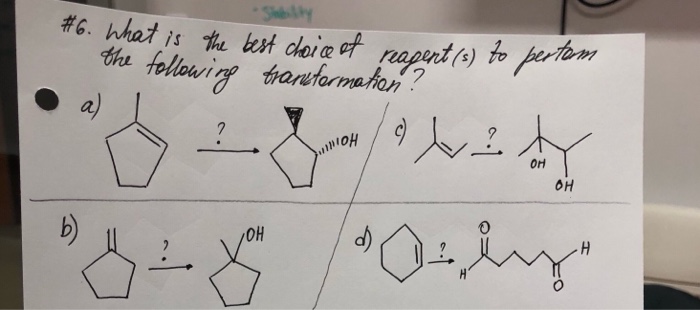 - Stability
#6. What is the best choice of reagent(s) to perform
the following transformation?
a)
?
OH
c)
?
OH
OH
b)
?
OH
d)
?
O
H
H
O